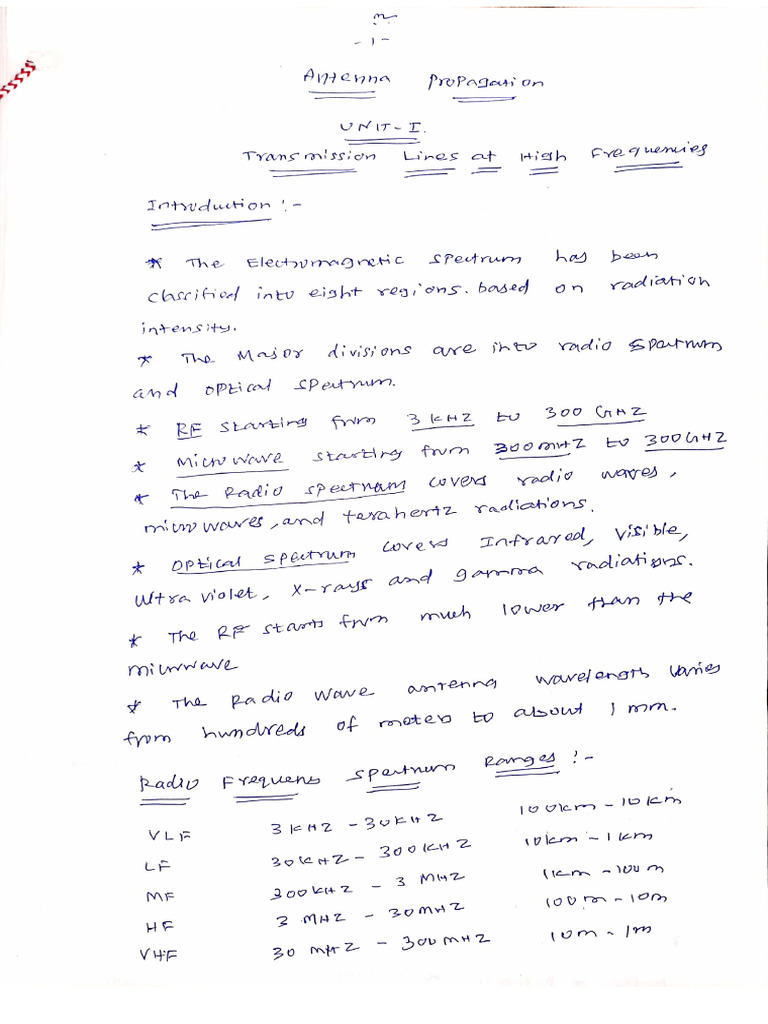 -1-
Antenna Propagation
UNIT-I.
Transmission Lines at High Frequencies
Introduction :-
* The Electromagnetic spectrum has been
classified into eight regions. based on radiation
intensity.
* The Major divisions are into radio spectrum
and optical spectrum.
* RF starting from 3 KHZ to 300 GHZ
* Microwave starting from 300MHZ to 300GHZ
* The Radio spectrum covers radio waves,
microwaves, and terahertz radiations.
* Optical spectrum covers Infrared, Visible,
Ultra violet, X-rays and gamma radiations.
* The RF starts from much lower than the
microwave
* The Radio wave antenna wavelength varies
from hundreds of meters to about 1 mm.
Radio Frequency Spectrum Ranges :-
VLF 3 KHZ - 30KHZ 100km - 10km
LF 30KHZ - 300KHZ 10km - 1km
MF 300KHZ - 3 MHZ 1km - 100m
HF 3 MHZ - 30MHZ 100m - 10m
VHF 30 MHZ - 300MHZ 10m - 1m